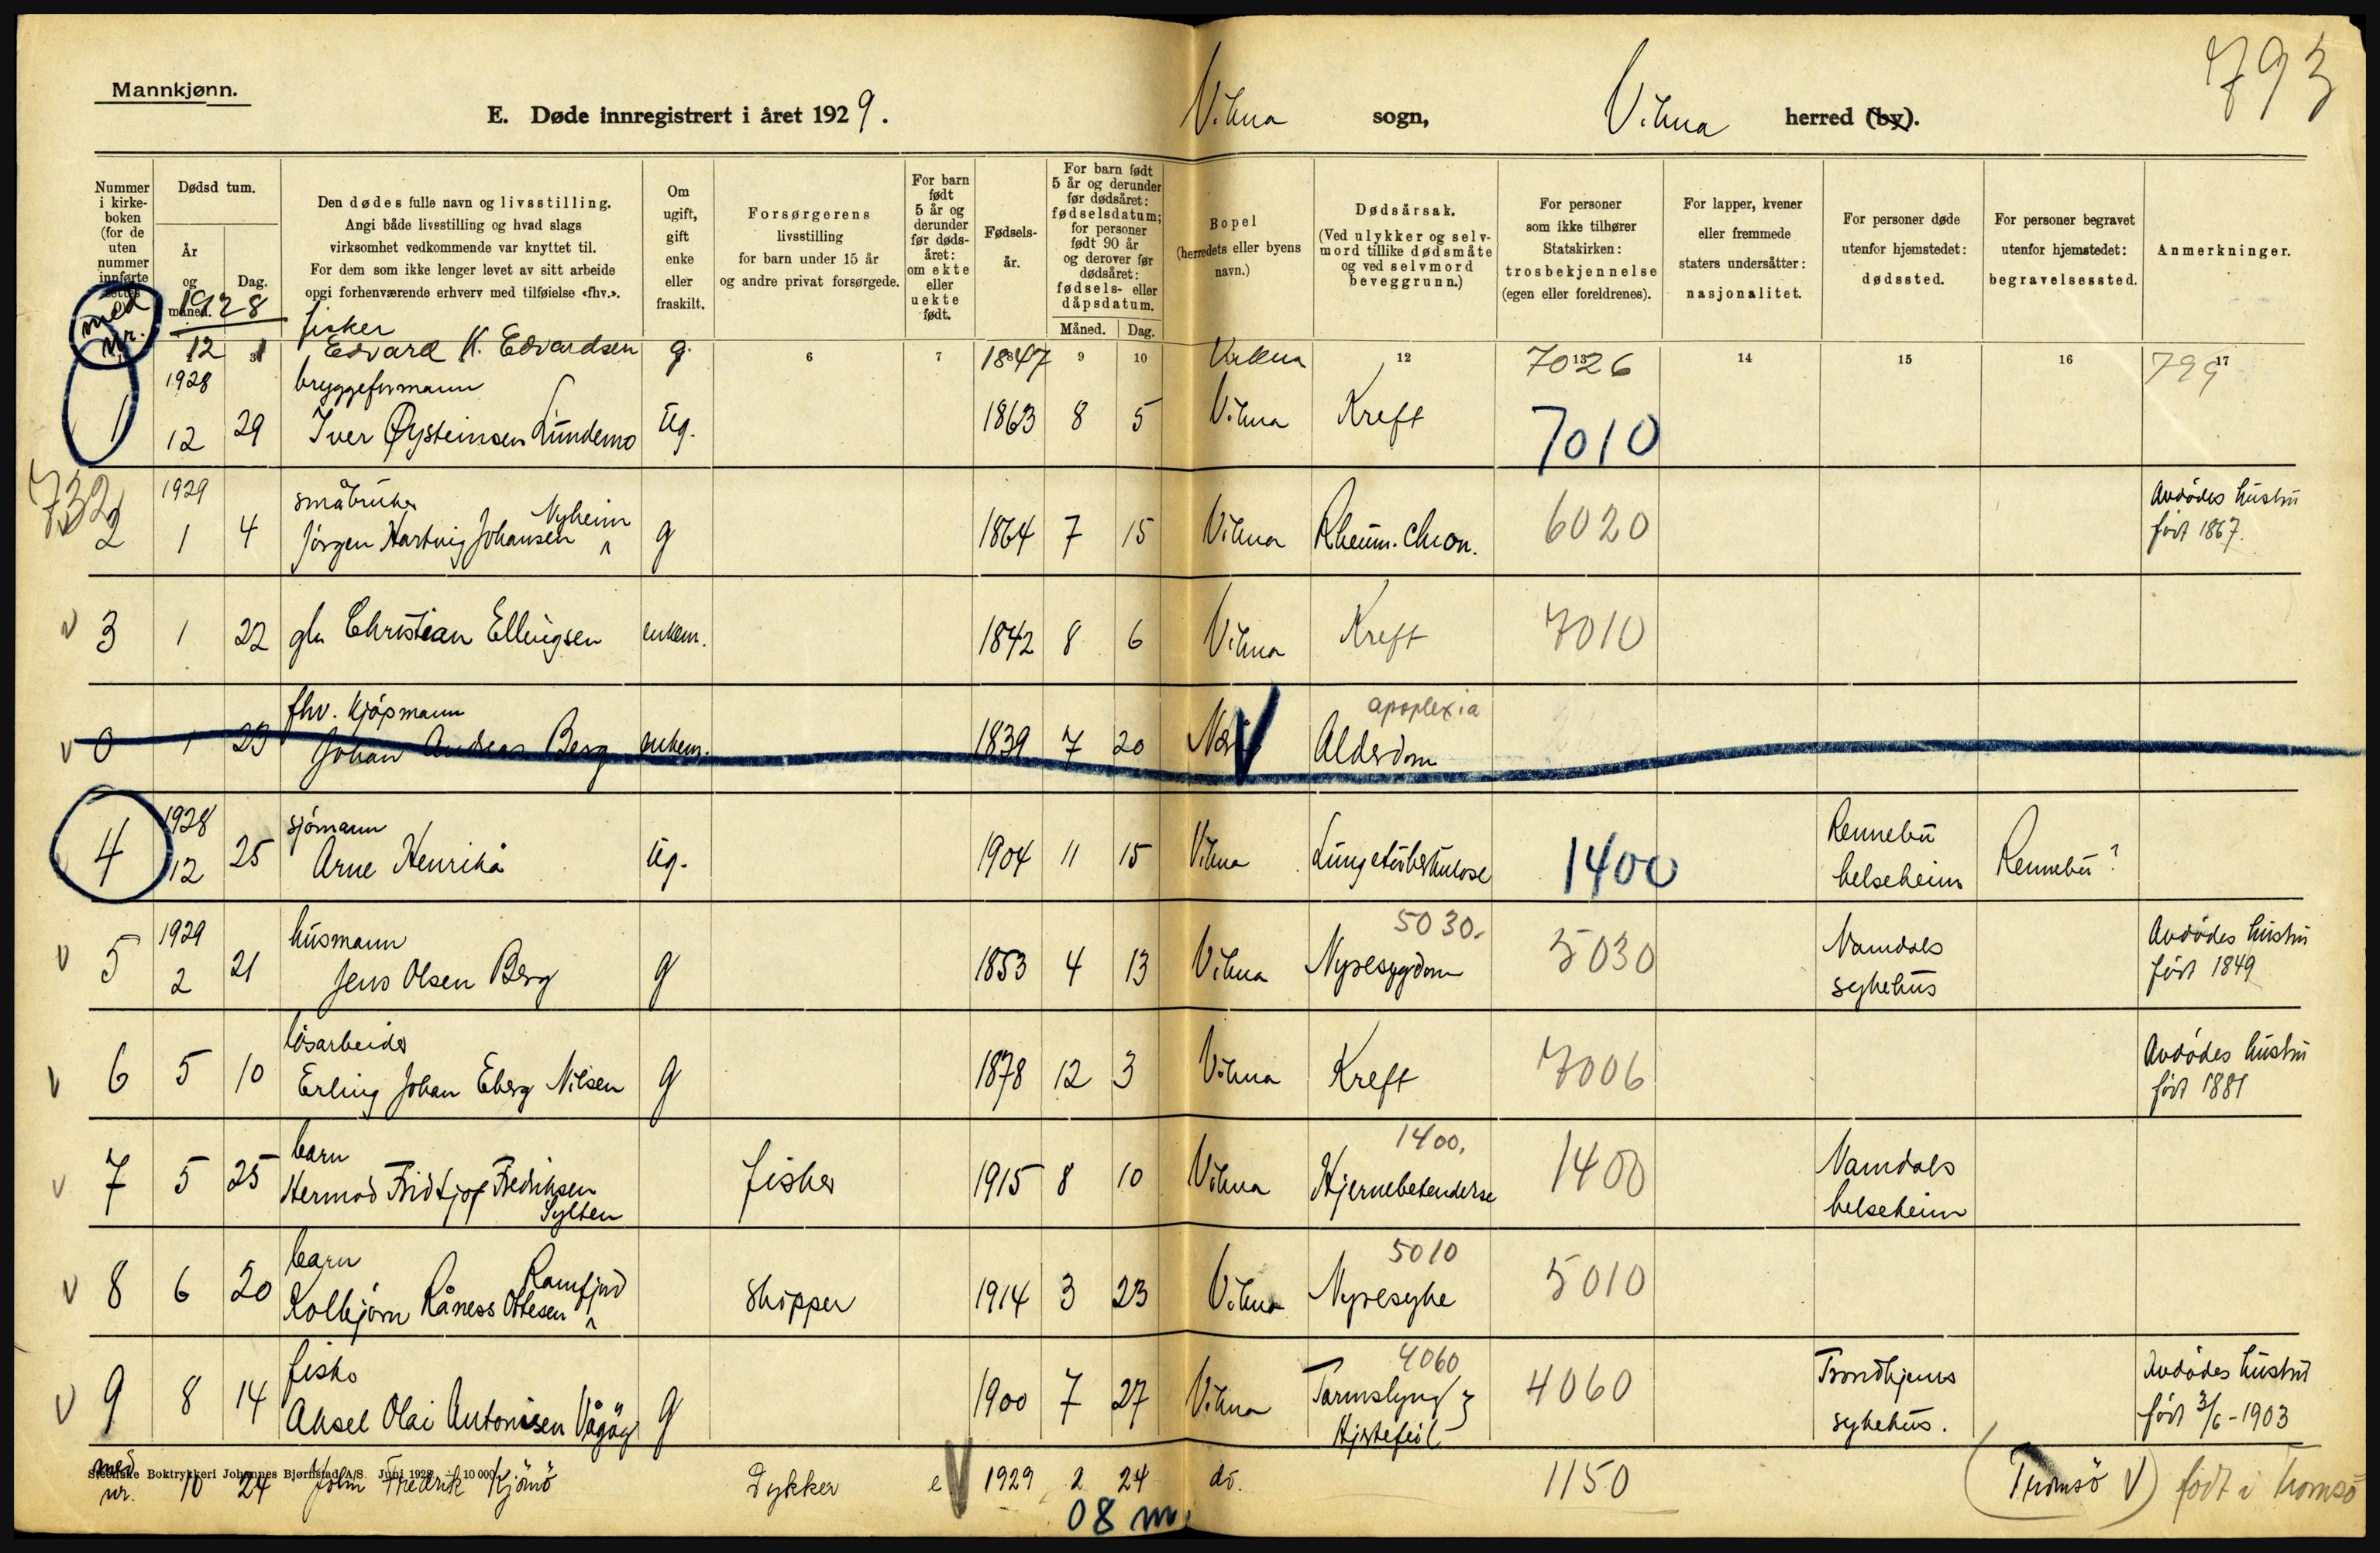 Mannkjønn.
793
E. Døde innregistrert i året 1929. Vikna sogn, Vikna herred (by).
Nummer i kirke-boken (for de uten nummer innførte settes 0).
Dødsd tum.
År og måned.
Dag.
Den dødes fulle navn og livsstilling.
Angi både livsstilling og hvad slags
virksomhet vedkommende var knyttet til.
For dem som ikke lenger levet av sitt arbeide
opgi forhenværende erhverv med tilføielse «fhv.».
Om ugift, gift enke eller fraskilt.
Forsørgerens livsstilling for barn under 15 år og andre privat forsørgede.
For barn født 5 år og derunder før døds-året: om ekte eller uekte født.
Fødsels-år.
For barn født 5 år og derunder før dødsåret: fødselsdatum; for personer født 90 år og derover før dødsåret: fødsels- eller dåpsdatum.
Måned. Dag.
Bopel (herredets eller byens navn.)
Dødsårsak. (Ved ulykker og selv-mord tillike dødsmåte og ved selvmord beveggrunn.)
For personer som ikke tilhører Statskirken: trosbekjennelse (egen eller foreldrenes).
For lapper, kvener eller fremmede staters undersåtter: nasjonalitet.
For personer døde utenfor hjemstedet: dødssted.
For personer begravet utenfor hjemstedet: begravelsessted.
Anmerkninger.
6 7 9 10 12 13 14 15 16 17
med nr. 1928 fisker
12 1 Edvard K. Edvardsen g. 1847 Vikna 7026 799
1928 bryggeformann
1 12 29 Iver Øysteinsen Lundemo ug. 1863 8 5 Vikna Kreft 7010
732
1929 småbruker Nyheim Avdødes hustru
2 1 4 Jørgen Hartvig Johansen g 1864 7 15 Vikna Rheum. chron. 6020 født 1867.
v 3 1 22 Christian Ellingsen enkem. 1842 8 6 Vikna Kreft 7010
fhv. kjøpmann apoplexia
v 0 1 23 Johan Andreas Berg enkem. 1839 7 20 V Alderdom
1928 sjømann Rennebu
4 12 25 Arne Henrikø ug. 1904 11 15 Vikna Lungetuberkulose 1400 helseheim Rennebu?
1929 husmann 5030. Namdals Avdødes hustru
v 5 2 21 Jens Olsen Berg g 1853 4 13 Vikna Nyresygdom 5030 sykehus født 1849
løsarbeider Avdødes hustru
v 6 5 10 Erling Johan Eberg Nilsen g 1878 12 3 Vikna Kreft 7006 født 1881
barn 1400. Namdals
v 7 5 25 Hermod Fridtjof Fredriksen Sylten fisker 1915 8 10 Vikna Hjernebetendelse 1400 helseheim
barn Ramfjord 5010
v 8 6 20 Kolbjørn Råness Ottesen skipper 1914 3 23 Vikna Nyresyke 5010
fisker 4060 Trondhjems Avdødes hustru
v 9 8 14 Aksel Olai Antonisen Vågøy g 1900 7 27 Vikna Tarmslyng Hjertefeil 4060 sykehus. født 3/6-1903
Steenske Boktrykkeri Johannes Bjørnstad A/S. Juni 1928 10 000
med nr. 10 24 John Fredrik Kjønø Dykker e V 1929 2 24 do. 1150 (Tromsø V) født i Tromsø
08 m.